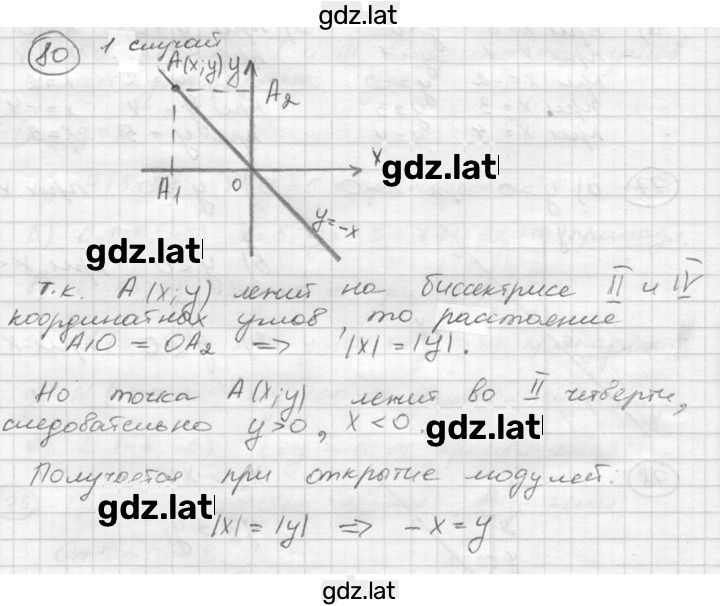 gdz.lat
80 1 случай
A(x;y) y
A2
x
gdz.lat
A1 0
y=-x
gdz.lat
т.к. A(x;y) лежит на биссектрисе II и IV
координатных углов, то расстояние
A1O = OA2 => |x| = |y|.
Но точка A(x;y) лежит во II четверти,
следовательно y>0, x<0.
gdz.lat
Получается при открытие модулей:
gdz.lat
|x| = |y| => -x = y
gdz.lat